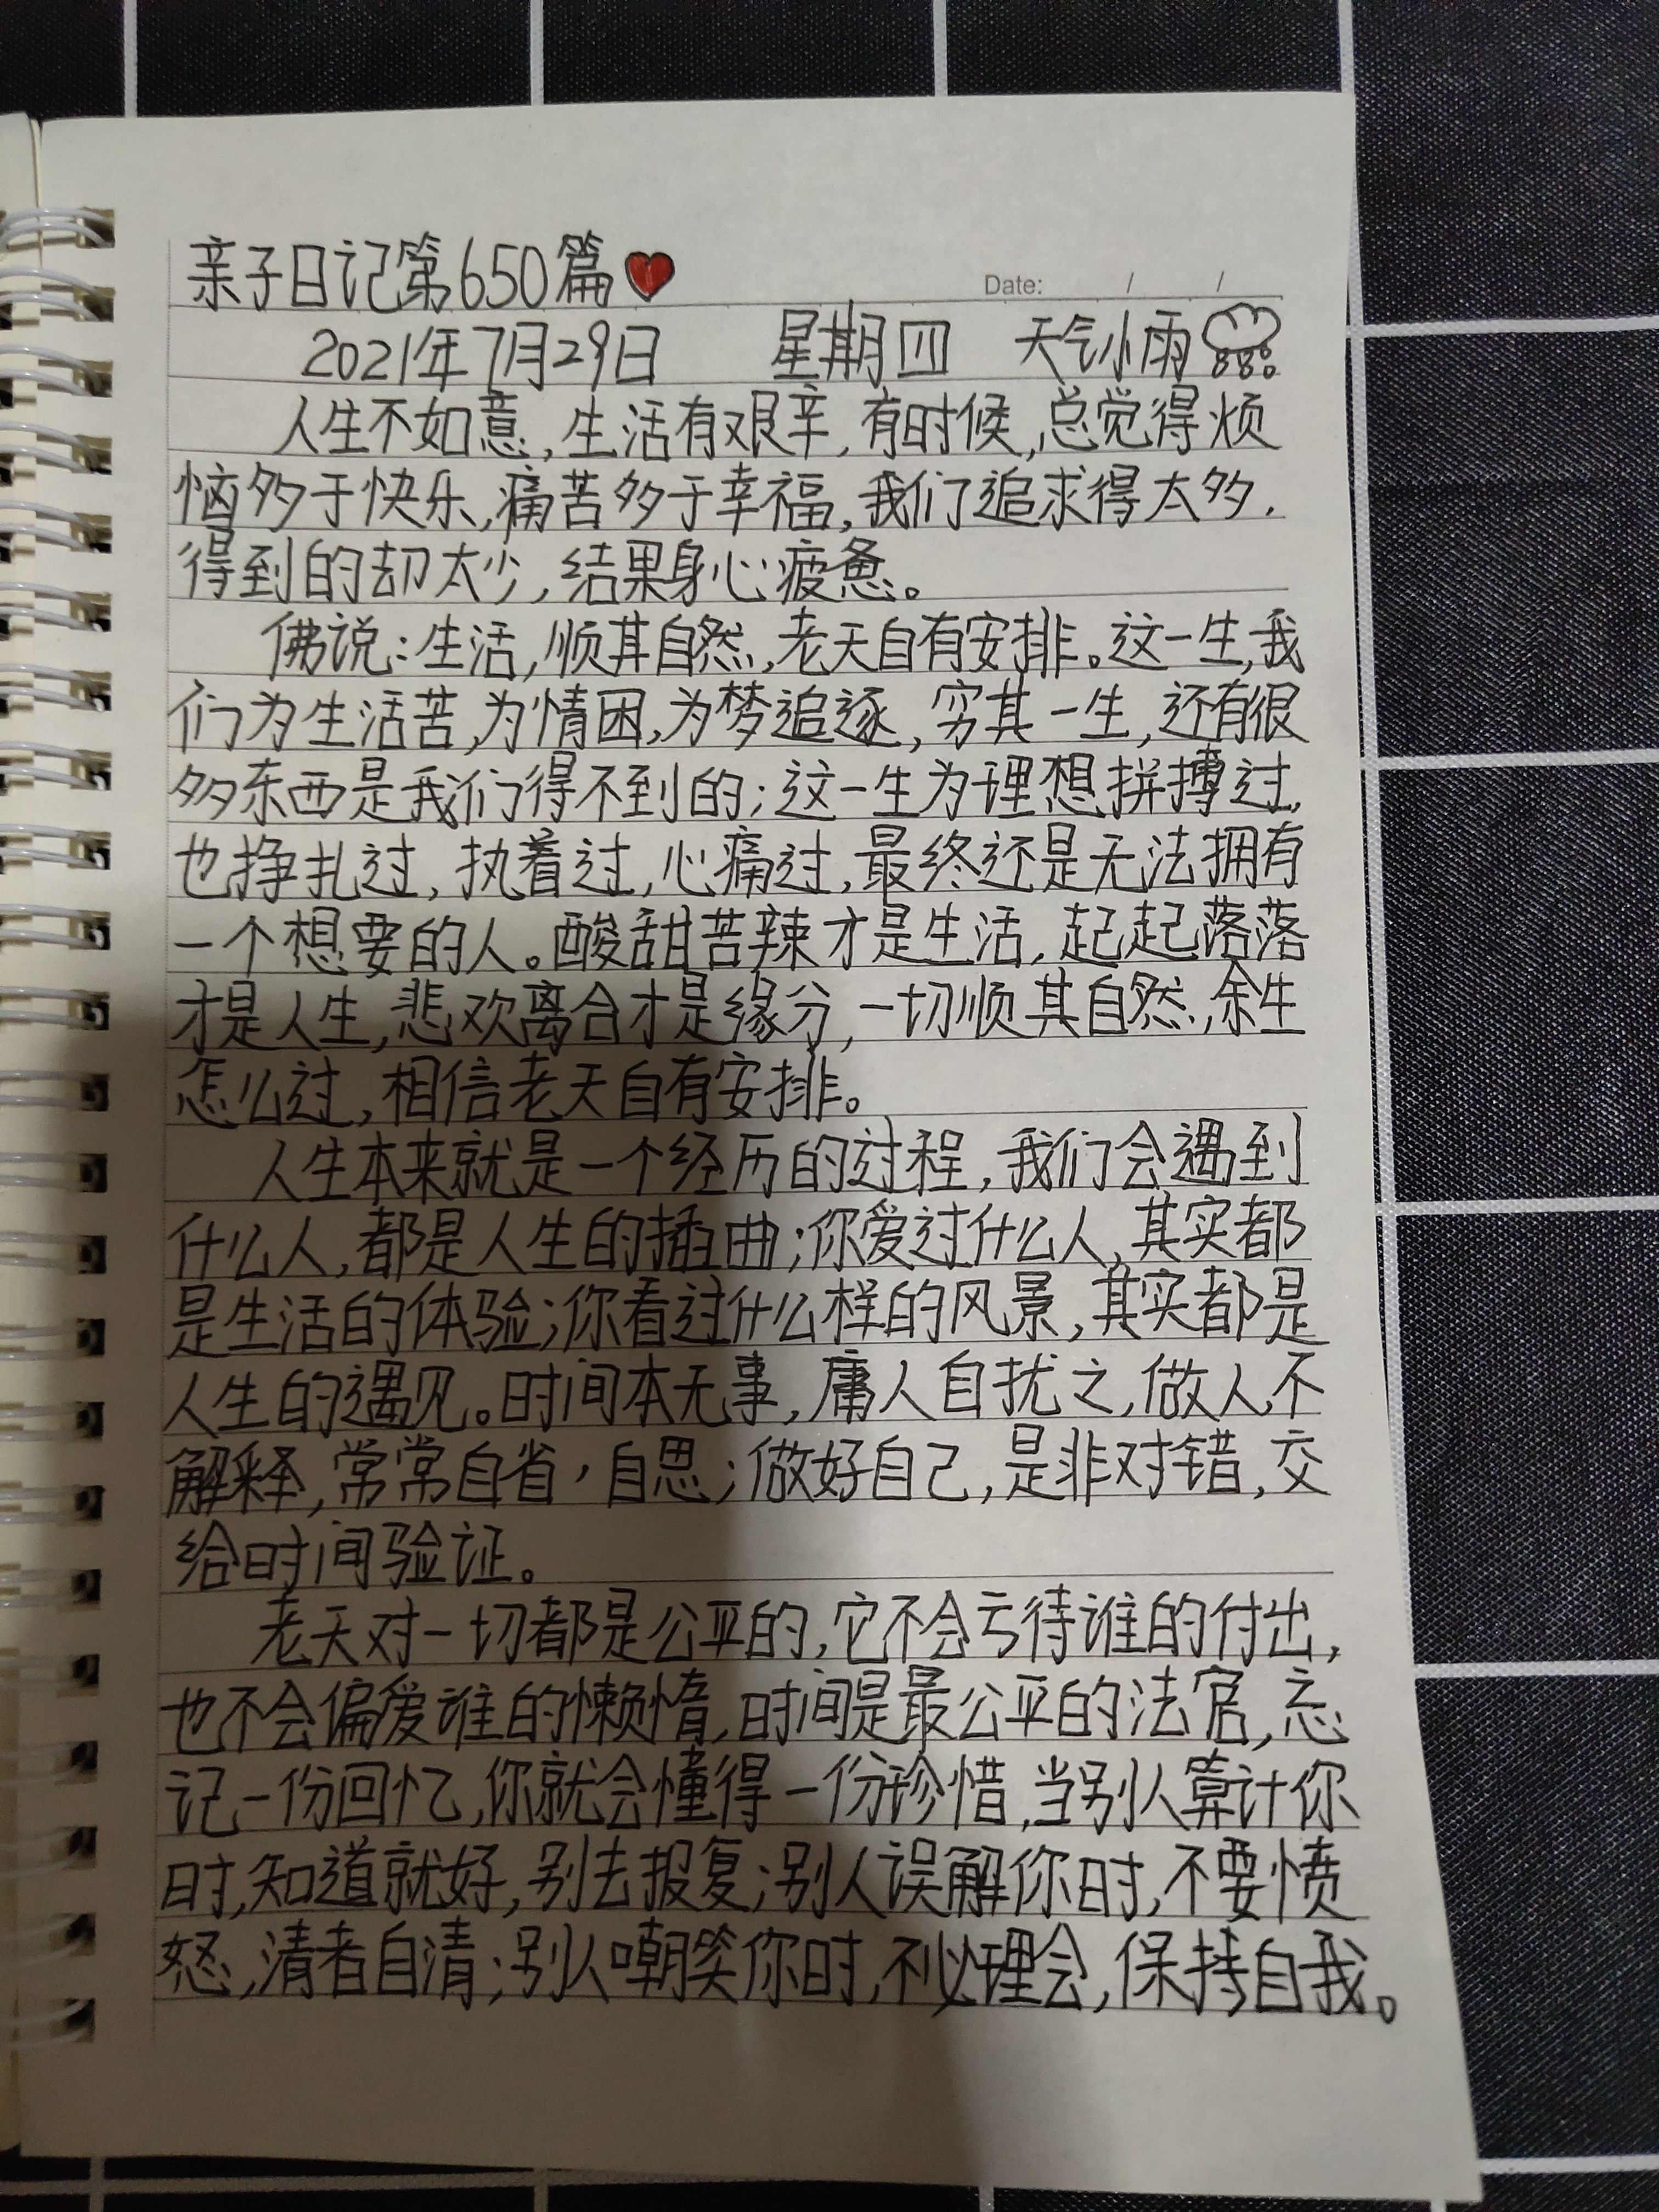 亲子日记第650篇
Date: / /
2021年7月29日 星期四 天气小雨
人生不如意,生活有艰辛,有时候,总觉得烦
恼多于快乐,痛苦多于幸福,我们追求得太多,
得到的却太少,结果身心疲惫。
佛说:生活,顺其自然,老天自有安排。这一生,我
们为生活苦,为情困,为梦追逐,穷其一生,还有很
多东西是我们得不到的;这一生为理想拼搏过,
也挣扎过,执着过,心痛过,最终还是无法拥有
一个想要的人。酸甜苦辣才是生活,起起落落
才是人生,悲欢离合才是缘分,一切顺其自然,余生
怎么过,相信老天自有安排。
人生本来就是一个经历的过程,我们会遇到
什么人,都是人生的插曲;你爱过什么人,其实都
是生活的体验;你看过什么样的风景,其实都是
人生的遇见。时间本无事,庸人自扰之,做人不
解释,常常自省,自思;做好自己,是非对错,交
给时间验证。
老天对一切都是公平的,它不会亏待谁的付出,
也不会偏爱谁的懒惰,时间是最公平的法官,忘
记一份回忆,你就会懂得一份珍惜,当别人算计你
时,知道就好,别去报复;别人误解你时,不要愤
怒,清者自清;别人嘲笑你时,不必理会,保持自我。